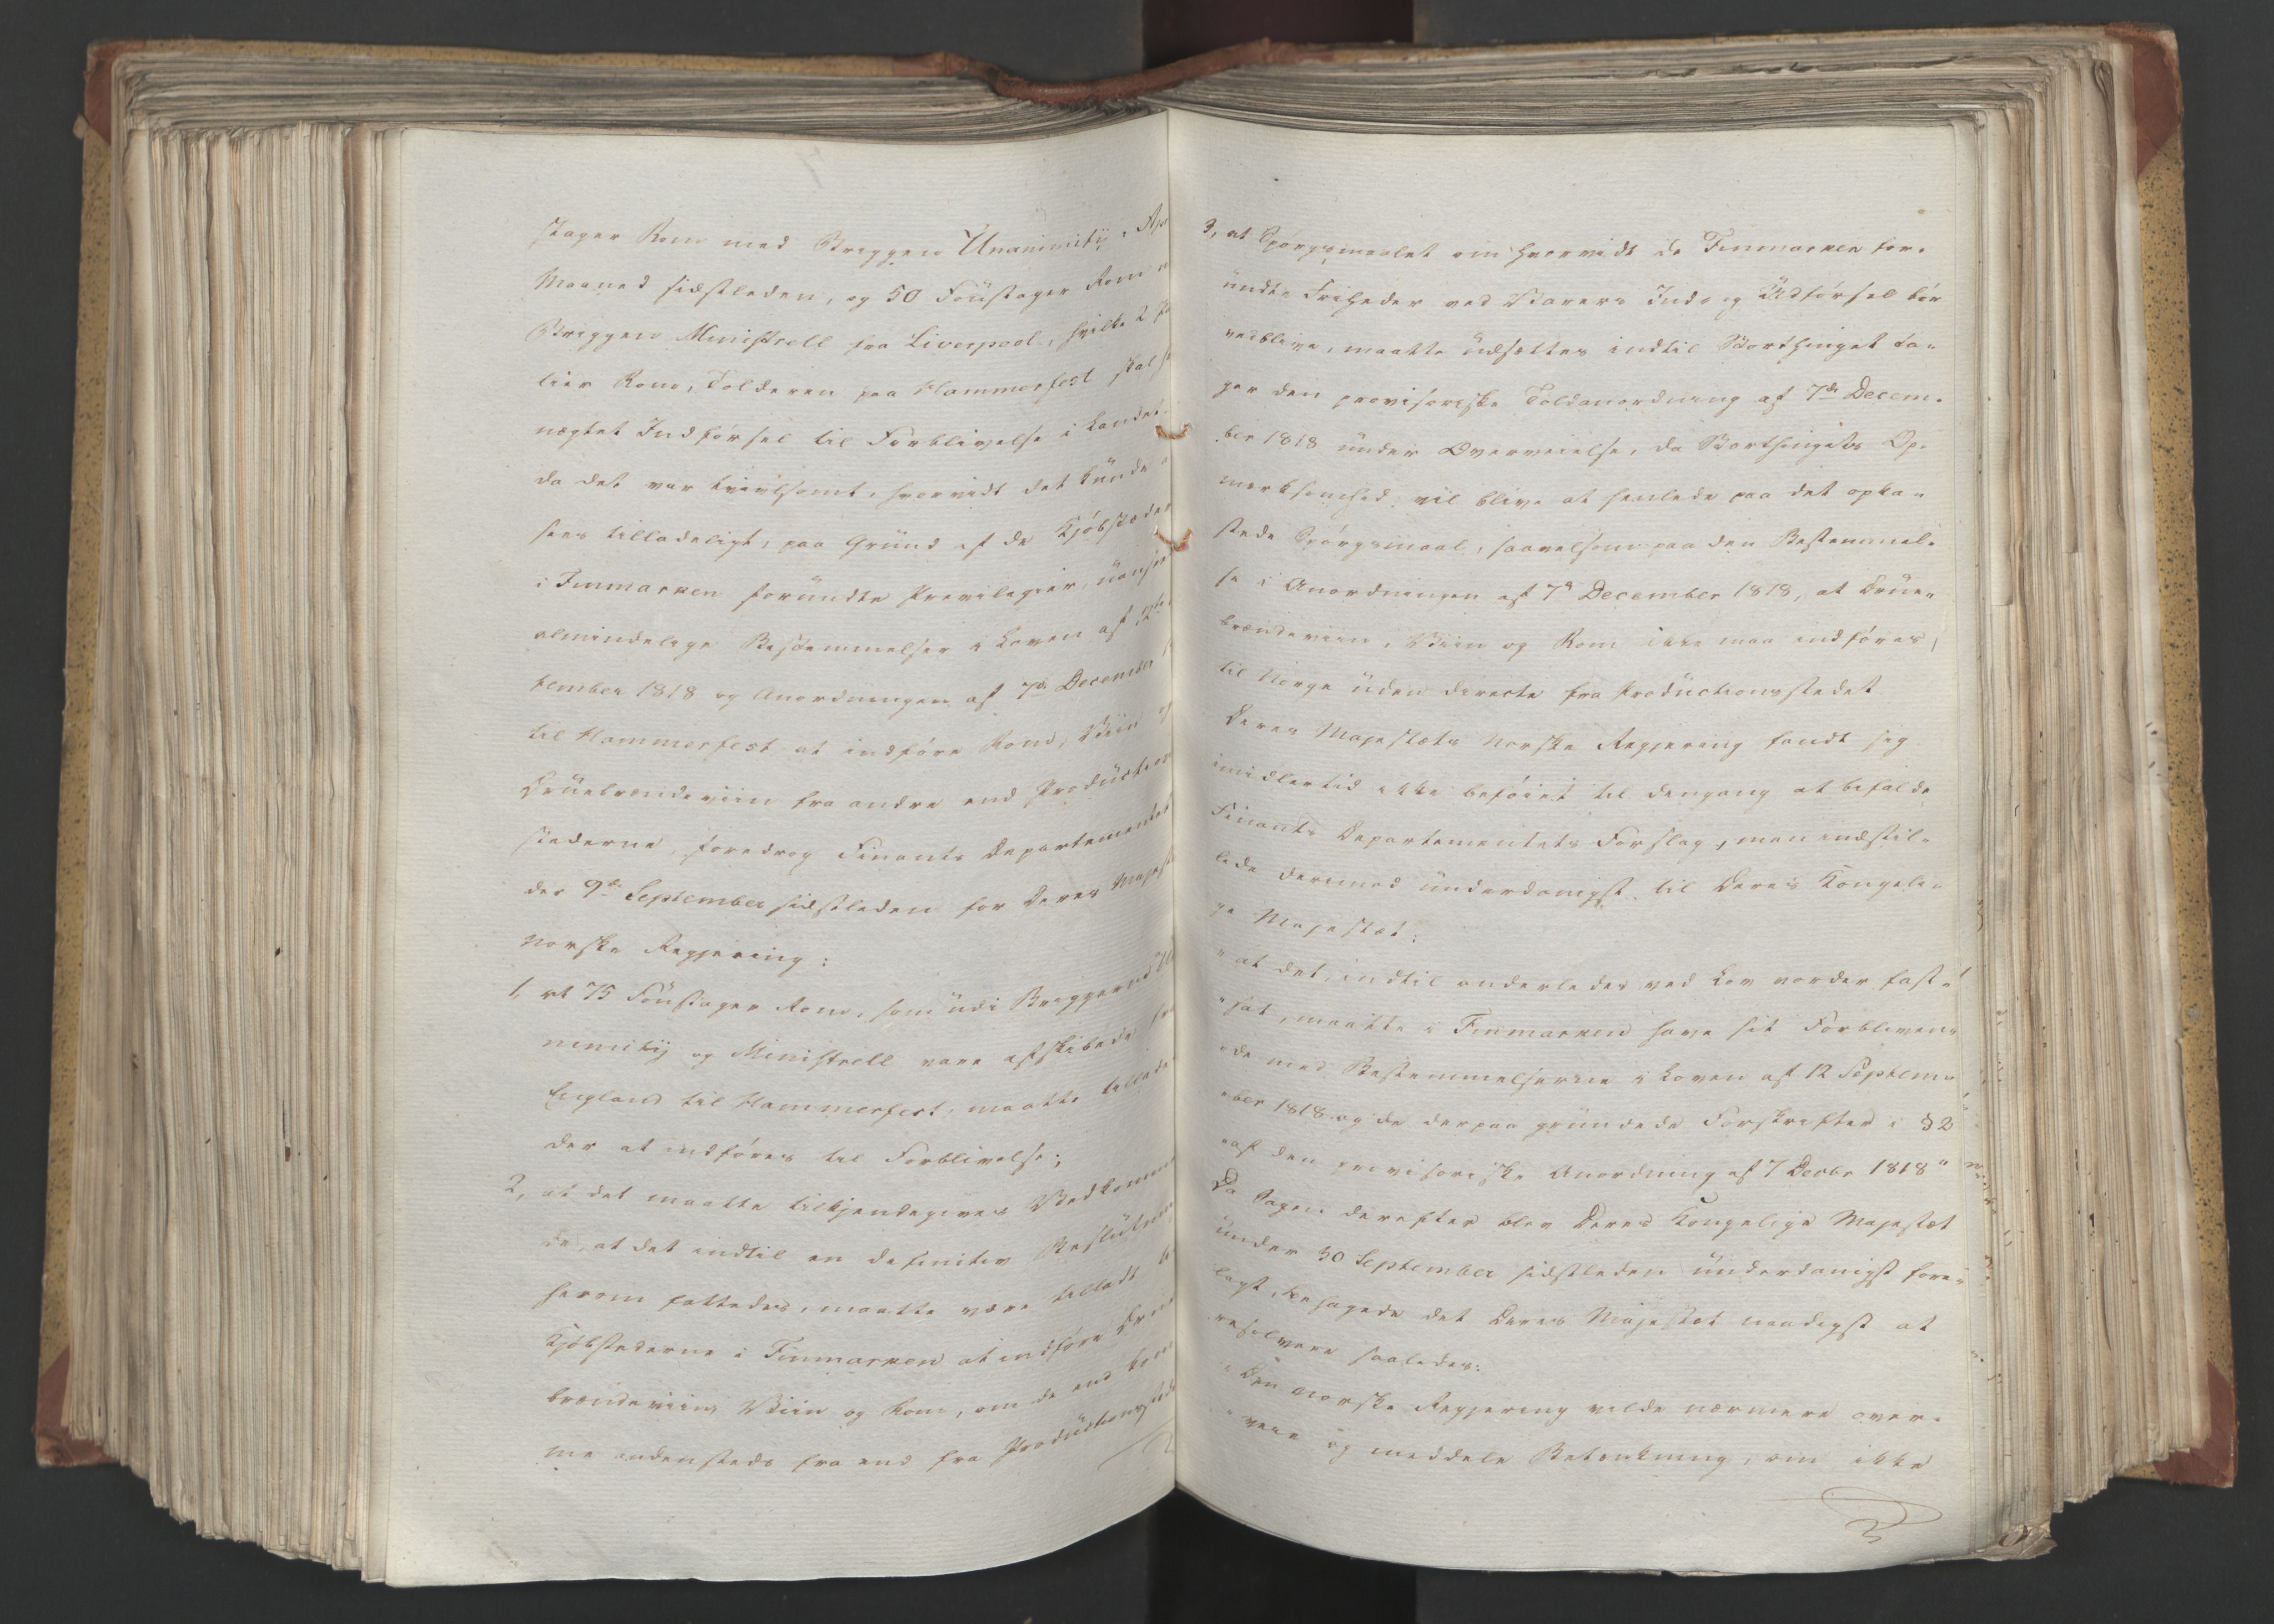 stager Rom med Briggen Unanimitij i Apr
Maaned sidstleden, og 50 Foustager Rom m
Briggen Ministrell fra Liverpool, hvilke 2 Pa
tier Rom, Tolderen paa Hammerfest skal h
nægtet Indførsel til Forblivelse i Landet
da det var tvivlsomt, hvorvidt det kunde a
sees tilladeligt, paa Grund af de Kjøbstæder
i Finmarken forundte Privilegier, uanseet
almindelige Bestemmelser i Loven af 12te
tember 1818 og Anordningen af 7de December
til Hammerfest at indføre Rom, Viin og
Druebrændeviin fra andre end Productions
stederne, foredrog Finants Departementet
des 9de September sidstleden for Deres Majest
norske Regjering:
1, at 75 Foustager Rom, som udi Briggerne Una
nimitij og Ministrell vare afskibede fra
England til Hammerfest, maatte tillades
der at indføres til Forblivelse;
2, at det maatte tilkjendegives Vedkommen
de, at det indtil en definitiv Beslutning
herom fattedes, maatte være tilladt
Kjøbstederne i Finmarken at indføre Drue
brændeviin, Viin og Rom, om de end kom
me andensteds fra end fra Productionsstede
3, at Spørgsmaalet om hvorvidt de Finmarken for-
undte Friheder ved Varers Ind- og Udførsel bør
vedblive, maatte udsættes indtil Storthinget ta-
ger den provisoriske Toldanordning af 7de Decem-
ber 1818 under Overveielse, da Storthingets Op-
mærksomhed vil blive at henlede paa det opka-
stede Spørgsmaal, saavelsom paa den Bestemmel-
se i Anordningen af 7de December 1818, at Drue-
brændeviin, Viin og Rom ikke maa indføres
til Norge uden directe fra Productionsstedet
Deres Majestæts norske Regjering fandt sig
imidlertid ikke beføiet til dengang at bifalde
Finants Departementets Forslag, men indstil-
lede derimod underdanigst til Deres Kongeli-
ge Majestæt:
"at det, indtil anderledes ved Lov vorder fast-
"sat, maatte i Finmarken have sit Forbliven-
"de med Bestemmelserne i Loven af 12 Septem-
"ber 1818 og de derpaa grundede Forskrifter i § 2
"af den provisoriske Anordning af 7 Decbr 1818"
Da Sagen derefter blev Deres Kongelige Majestæt
under 30 September sidstleden underdanigst fore-
lagt, behagede det Deres Majestæt naadigst at
resolvere saaledes:
"Den norske Regjering vilde nærmere over-
"veie og meddele Betænkning, om ikke